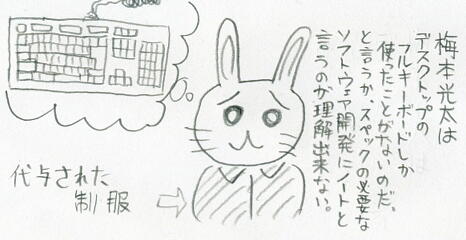 梅本光太は
デスクトップの
フルキーボードしか
使ったことがないのだ。
と言うか、スペックの必要な
ソフトウェア開発にノートと
言うのが理解出来ない。
代与された
制服